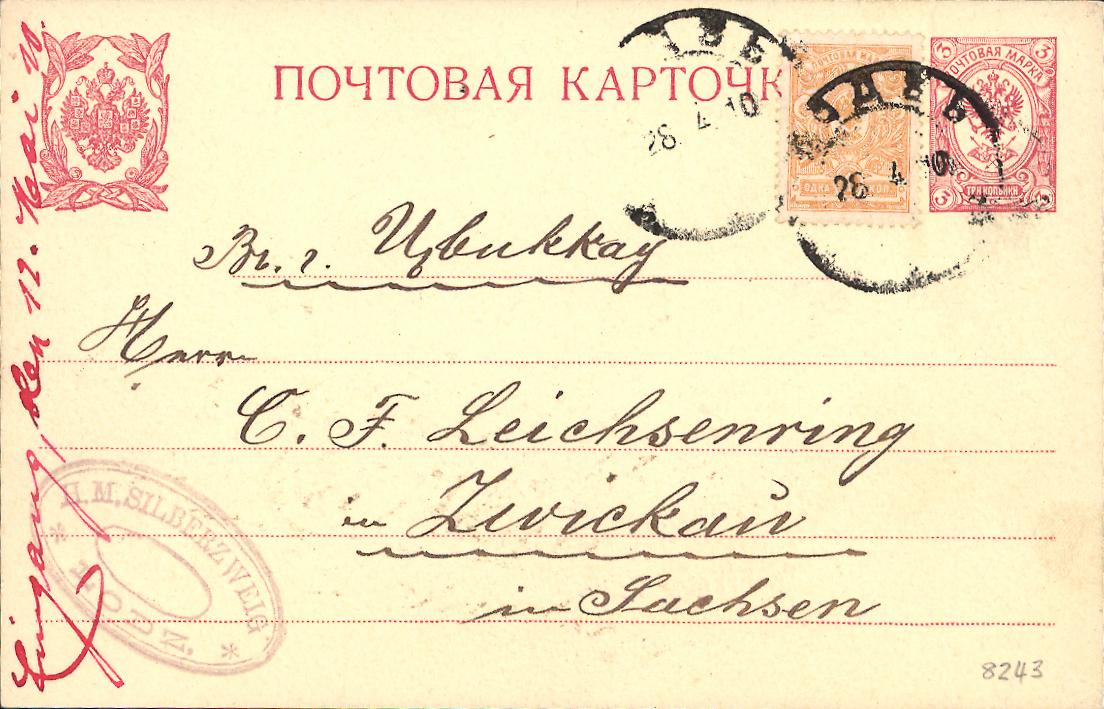 ПОЧТОВАЯ КАРТОЧК
ПОЧТОВАЯ МАРКА
3 3
ТРИ КОПЕЙКИ
3 3
ОДНА КОП.
26 4 10
26 4 10
Въ г. Цвиккау
Herrn
C. F. Leichsenring
in Zwickau
in Sachsen
Eingang, den 12. Mai 10.
H. M. SILBERZWEIG
* LODZ. *
8243